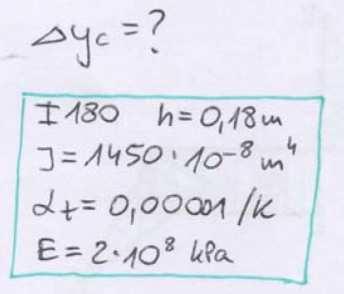 Δyc = ?
I 180 h = 0,18 m
J = 1450 · 10⁻⁸ m⁴
αt = 0,00001 /K
E = 2 · 10⁸ kPa